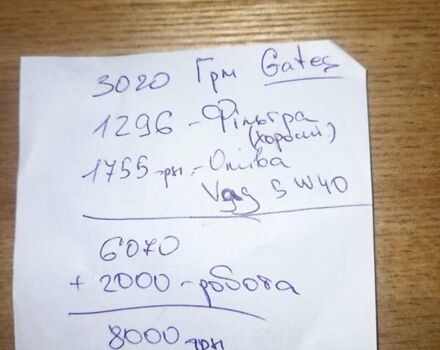 3020 Грм Gates
1296 - Фільтра
(хороші)
1755 грн - Олива
Vag 5W40
6070
+ 2000 - робота
8000 грн